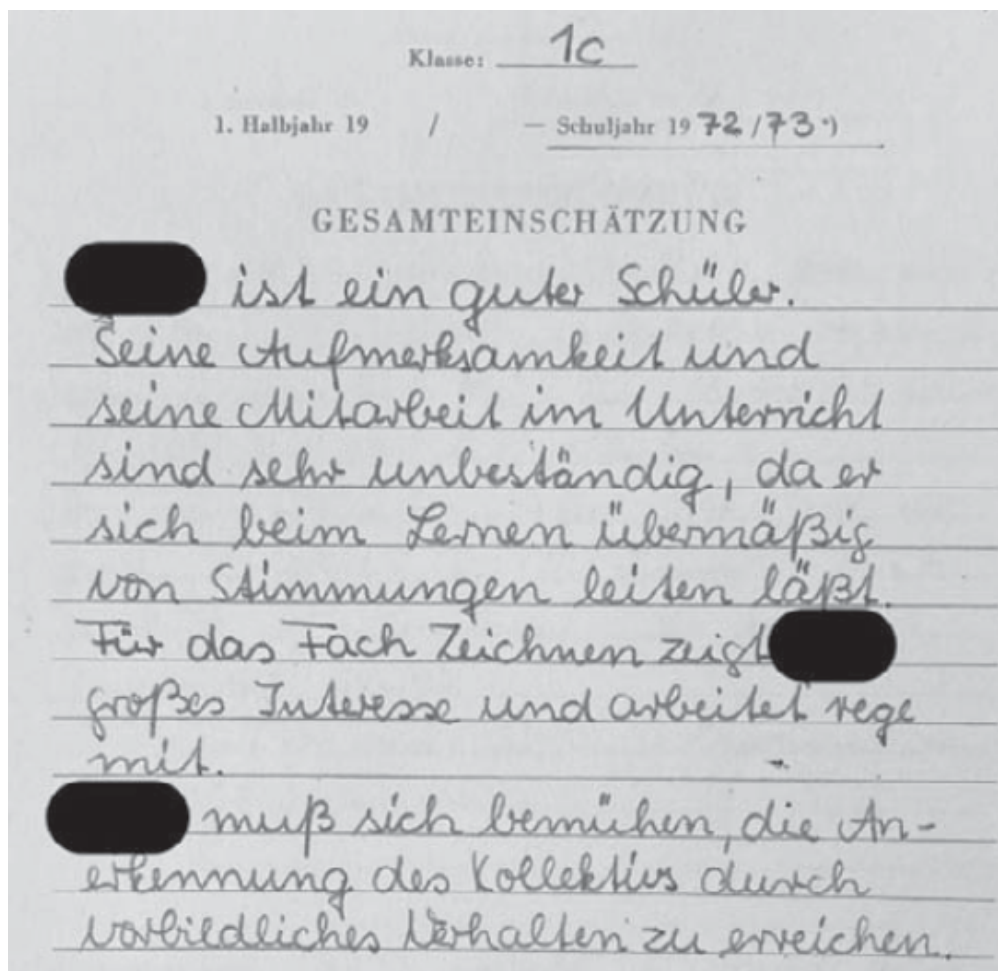 Klasse: 1c
1. Halbjahr 19 / — Schuljahr 1972/73*)
GESAMTEINSCHÄTZUNG
ist ein guter Schüler.
Seine Aufmerksamkeit und
seine Mitarbeit im Unterricht
sind sehr unbeständig, da er
sich beim Lernen übermäßig
von Stimmungen leiten läßt.
Für das Fach Zeichnen zeigt
großes Interesse und arbeitet rege
mit.
muß sich bemühen, die An-
erkennung des Kollektivs durch
vorbildliches Verhalten zu erreichen.